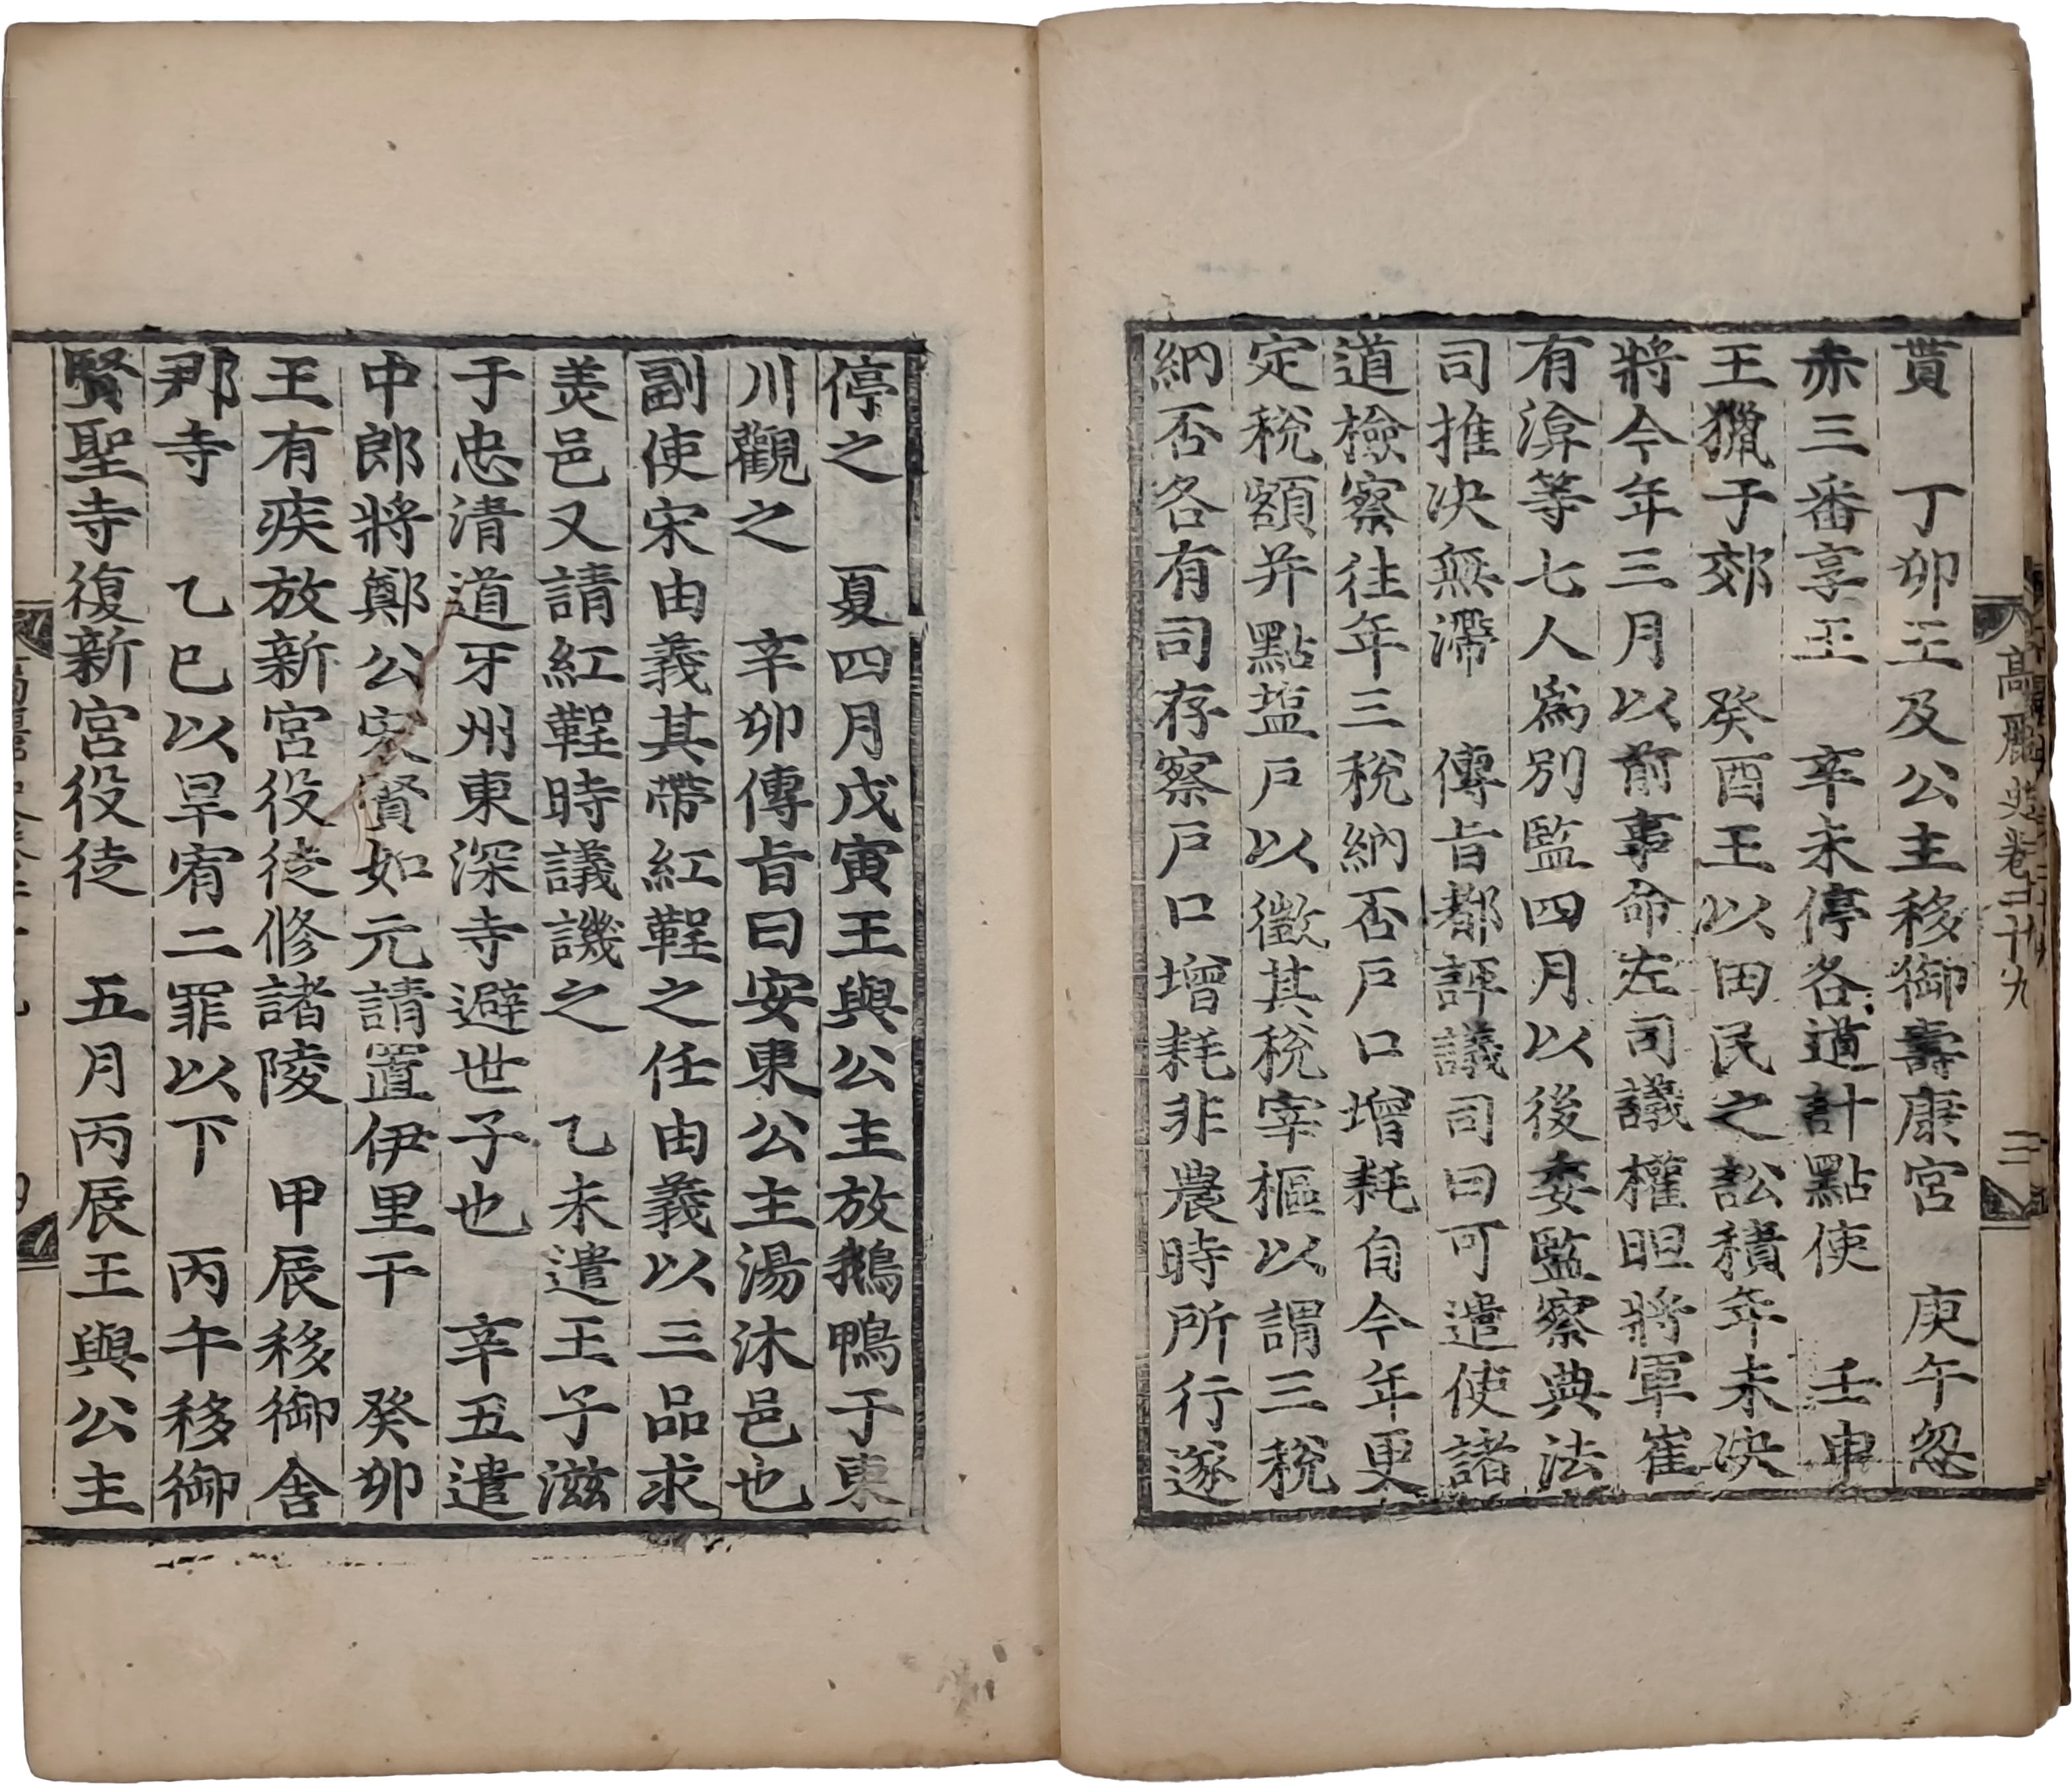 高麗史卷二十九
三
貰 丁卯王及公主移御壽康宮 庚午忽
赤三番享王 辛未停各道計點使 壬申
王獵于郊 癸酉王以田民之訟積年未決
將今年三月以前事命左司議權㫜將軍崔
有渰等七人爲別監四月以後委監察典法
司推決無滯 傳旨都評議司曰可遣使諸
道檢察往年三稅納否戶口增耗自今年更
定稅額并點塩戶以徵其稅宰樞以謂三稅
納否各有司存察戶口增耗非農時所行遂
停之 夏四月戊寅王與公主放鵝鴨于東
川觀之 辛卯傳旨曰安東公主湯沐邑也
副使宋由義其帶紅鞓之任由義以三品求
羙邑又請紅鞓時議譏之 乙未遣王子滋
于忠清道牙州東深寺避世子也 辛丑遣
中郎將鄭公宋賢如元請置伊里干 癸卯
王有疾放新宮役徒修諸陵 甲辰移御舍
那寺 乙巳以旱宥二罪以下 丙午移御
賢聖寺復新宮役徒 五月丙辰王與公主